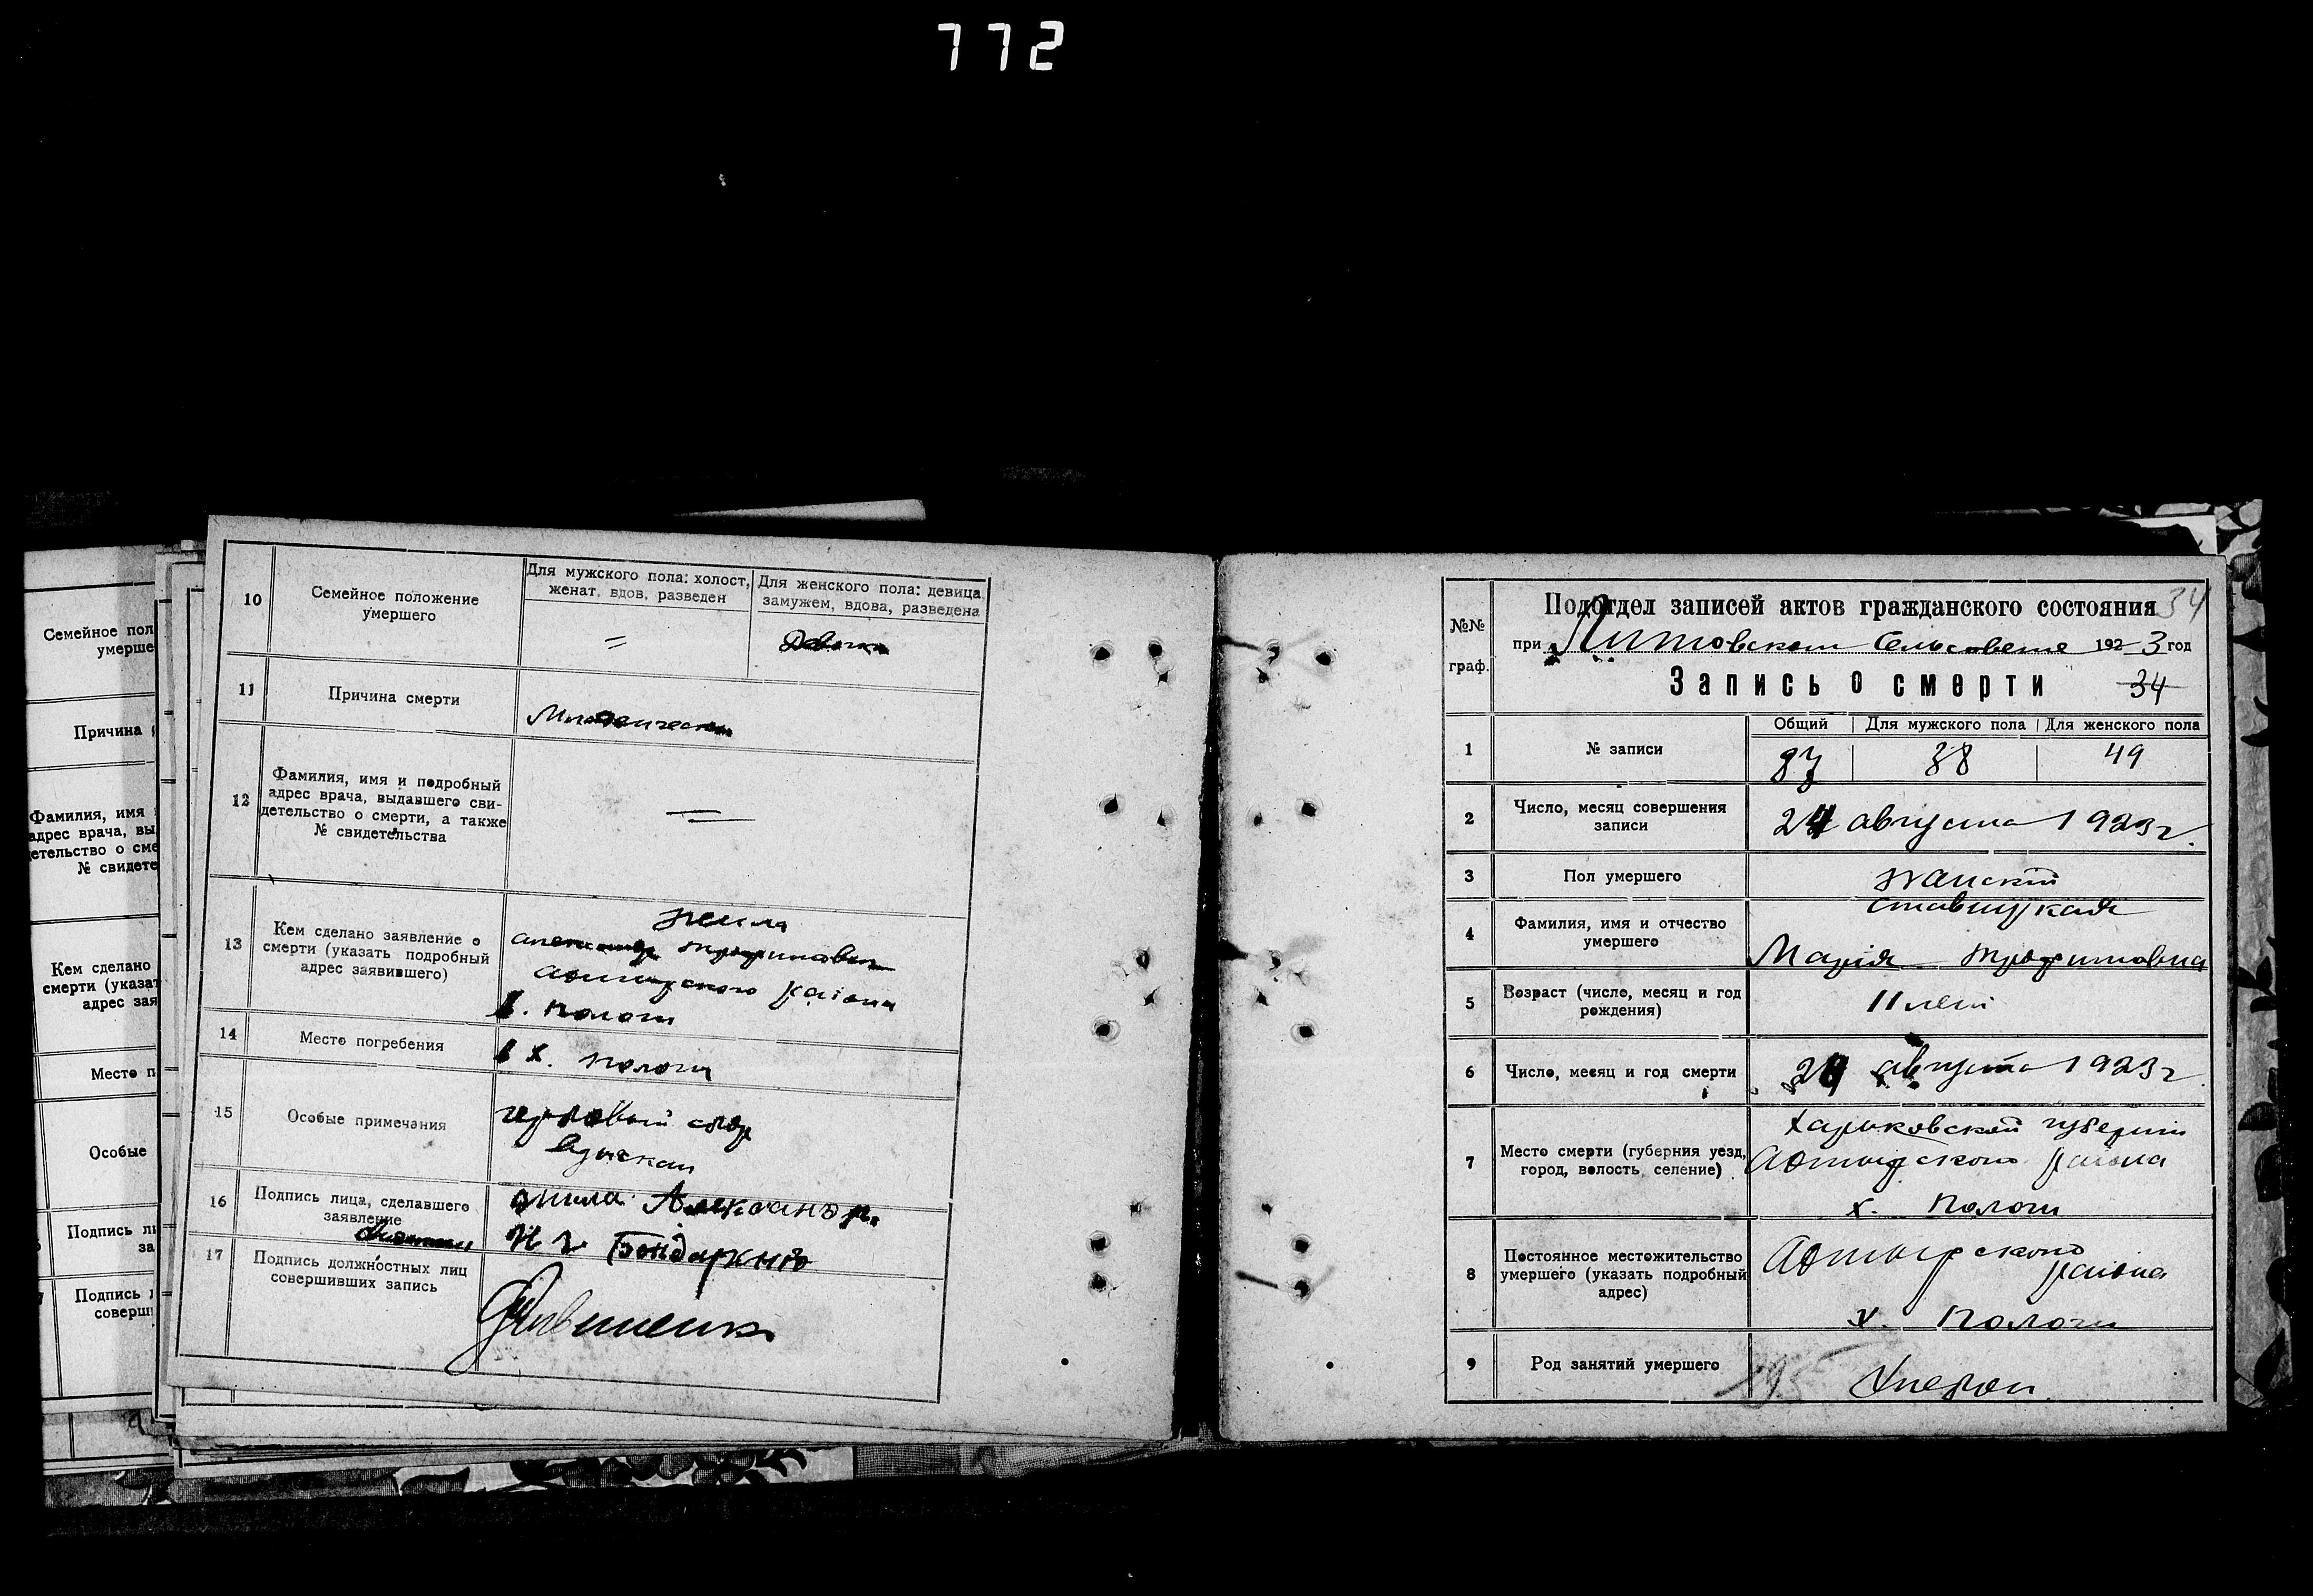 772
Семейное пол
умерше
Причина
Фамилия, имя
адрес врача, вы
етельство о сме
№ свидете
Кем сделано
смерти (указат
адрес зая
Место п
Особые
Подпись ли
за
Подпись
соверш
10
Семейное положение
умершего
Для мужского пола: холост,
женат, вдов, разведен
Для женского пола: девица,
замужем, вдова, разведена
=
11
Причина смерти
Младенческая
12
Фамилия, имя и подробный
адрес врача, выдавшего сви-
детельство о смерти, а также
№ свидетельства
13
Кем сделано заявление о
смерти (указать подробный
адрес заявившего)
района
х. Пологи
14
Место погребения
в х. Пологи
15
Особые примечания
гербовый сбор
взыскан
16
Подпись лица, сделавшего
заявление
Александр.
Бондаренко
17
Подпись должностных лиц
совершивших запись
№№
граф.
Подотдел записей актов гражданского состояния 34
при Литовском Сельсовете 1923 год
Запись о смерти 34
1
№ записи
Общий
Для мужского пола
Для женского пола
87
38
49
2
Число, месяц совершения
записи
24 августа 1923 г.
3
Пол умершего
женский
4
Фамилия, имя и отчество
умершего
Ставицкая
Марія Трофимовна
5
Возраст (число, месяц и год
рождения)
11 лет
6
Число, месяц и год смерти
24 августа 1923 г.
7
Место смерти (губерния уезд,
город, волость, селение)
Харьковской губернии
Ахтырского района
х. Пологи
8
Постоянное местожительство
умершего (указать подробный
адрес)
Ахтырского
района
х. Пологи
9
Род занятий умершего
195